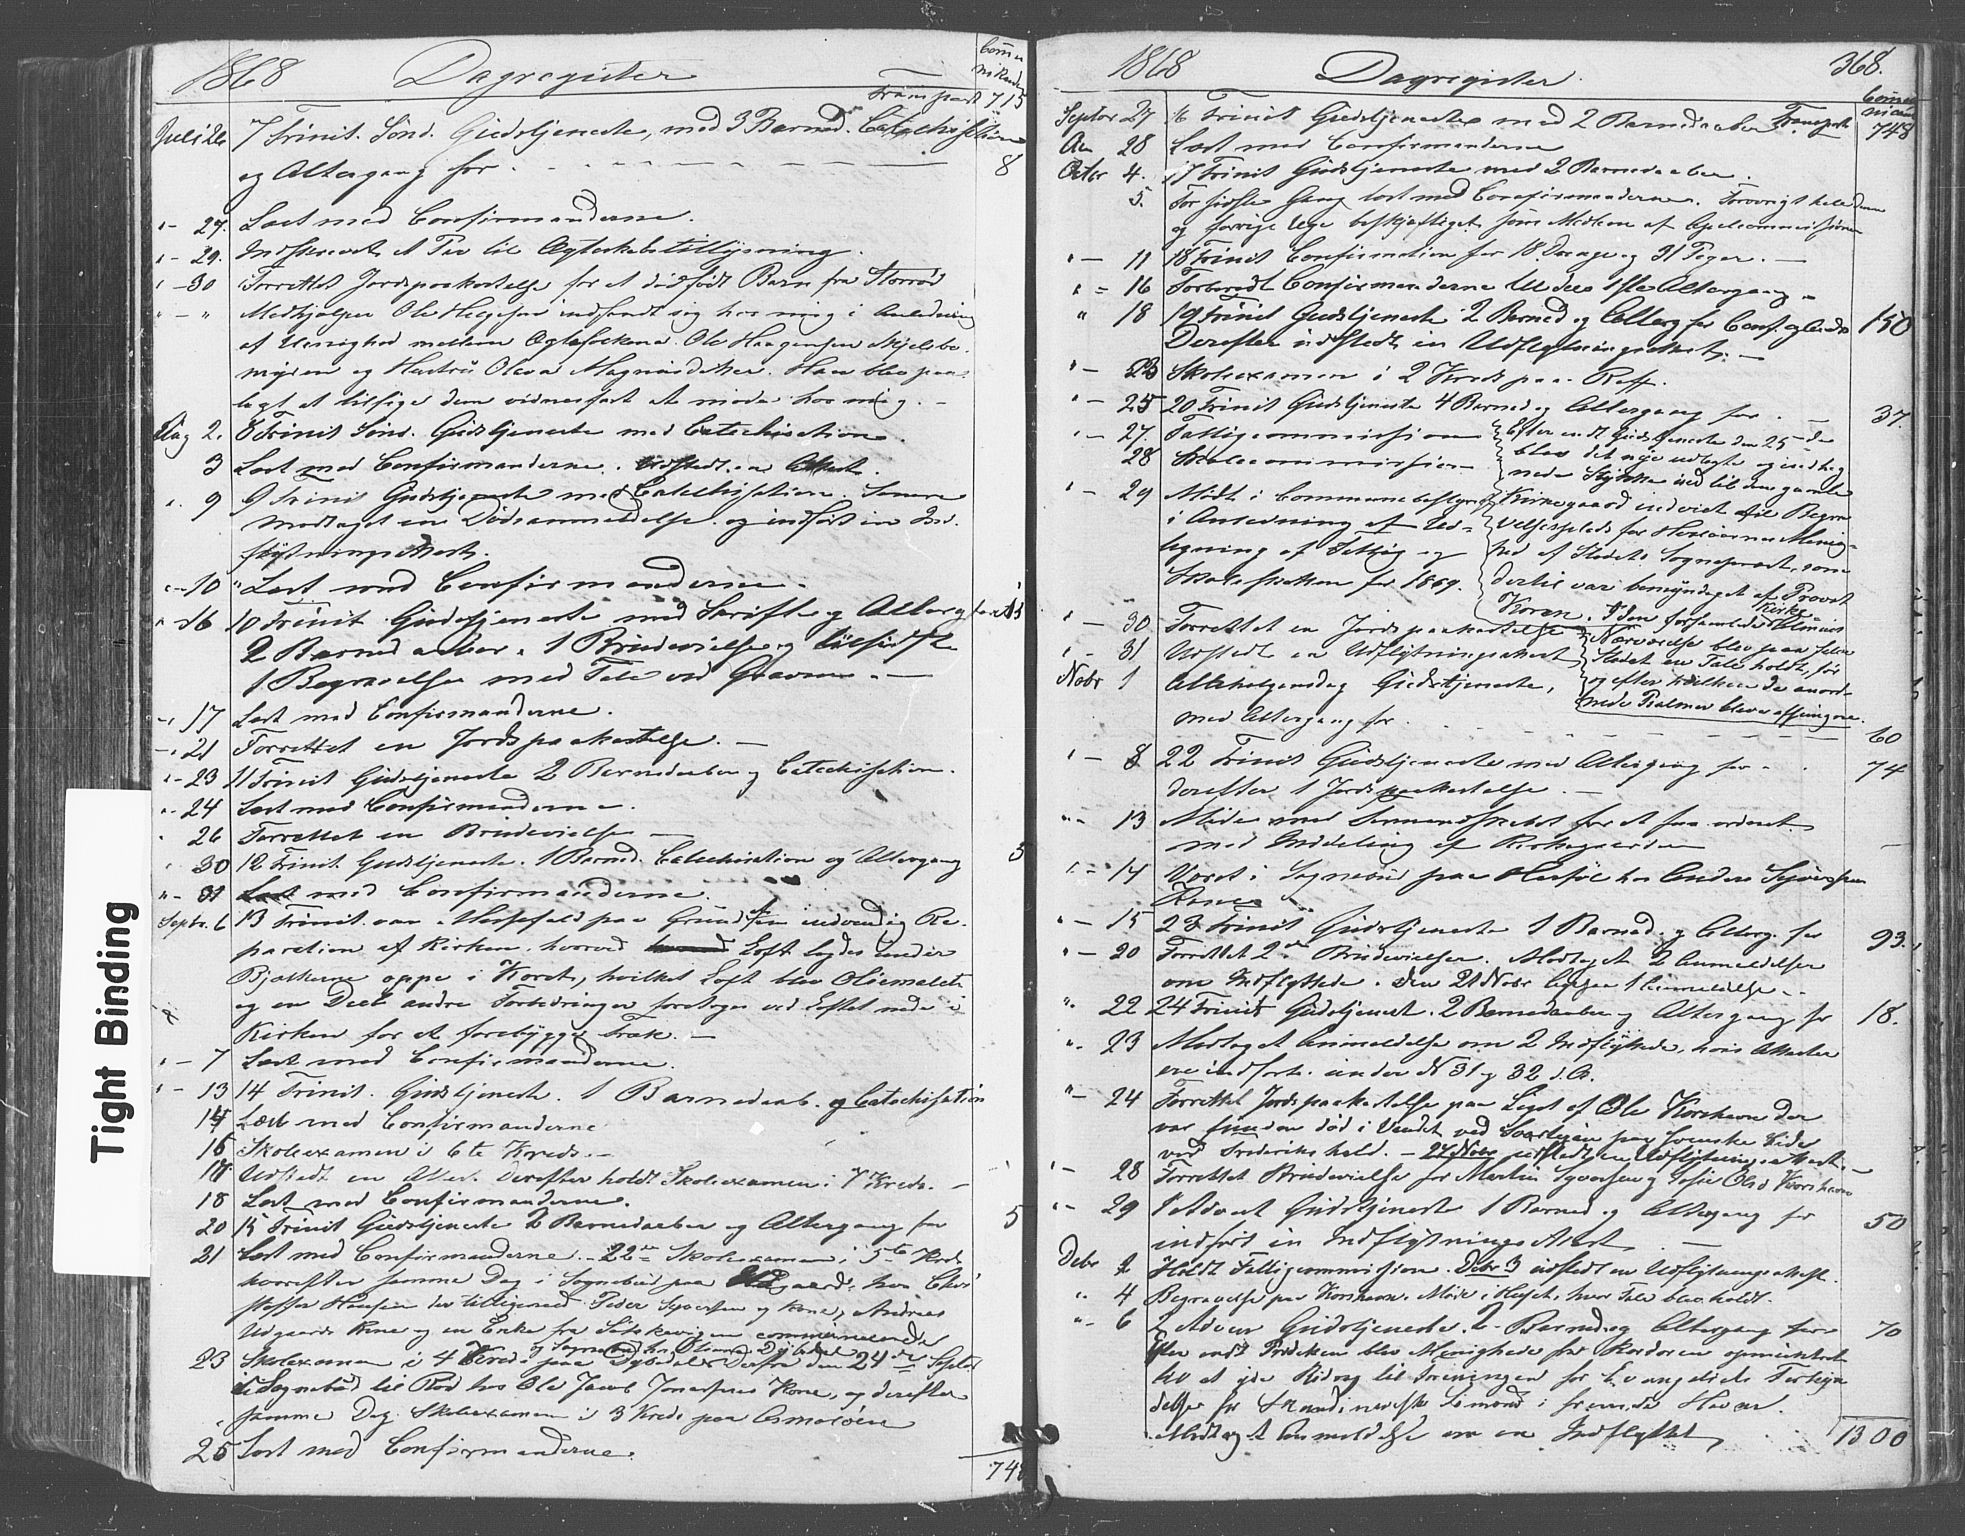 1868 Dagregister
Transport 715
Juli 26 7 Trinit. Sønd. Gudstjeneste, med 3 Barned. Catechisation
og Altergang for 8
" - 27. Læst med Confirmanderne.
" - 29. Indskrevet et Par til Ægteskabstillysning.
" - 30 Forrettet Jordspaakastelse for et dødfødt Barn fra
" - " Medhjælper Ole Helgesen indfandt sig hos mig i Anledning
af Uenighed mellem Ægtefolkene Ole Haagensen
myren og Hustru Olava Magnusdatter. Han blev paa-
lagt at tilsige dem vidnesfast at møde hos mig. -
Aug 2. 8 Trinit Sønd. Gudstjeneste med Catechisation
3 Læst med Confirmanderne. Udstedt en Attest.
" 9 9 Trinit Gudstjeneste med Catechisation. Senere
modtaget en Dødsanmeldelse og indført en Ind-
flytningsattest.
" - 10 Læst med Confirmanderne.
" 16 10 Trinit Gudstjeneste med Skrifte og Alterg for 13
2 Barnedaaber, 1 Brudevielse og tilsidst
1 Begravelse med Tale ved Graven. -
- " 17 Læst med Confirmanderne.
- " 21 Forrettet en Jordspaakastelse. -
" - 23 11 Trinit Gudstjeneste 2 Barnedaaber og Catechisation.
" - 24 Læst med Confirmanderne.
" 26 Forrettet en Brudevielse -
" 30 12 Trinit. Gudstjeneste. 1 Barned. Catechisation og Altergang 5
" - 31 Læst med Confirmanderne.
Septr. 6 13 Trinit. var Messefald paa Grund af en indvendig Re-
paration af Kirken, hvorved Loft lagdes under
Bjælkerne oppe i Koret, hvilket Loft blev Oliemalet
og en Deel andre Forbedringer foretoges ved Loftet nede i
Kirken for at forebygge Træk. -
" - 7 Læst med Confirmanderne.
" - 13 14 Trinit. Gudstjeneste. 1 Barnedaab. og Catechisation
14 Læst med Confirmanderne
16 Skoleexamen i 6te Kreds. -
17 Udstedt en Attest. Derefter holdt Skoleexamen i Kreds. -
18 Læst med Confirmanderne.
20 15 Trinit Gudstjeneste 2 Barnedaaber og Altergang for 5
21 Læst med Confirmanderne. - 22de Skoleexamen i 5te Kreds
hvorefter samme Dag i Sognebud paa hos Chri-
stoffer Hansen der tilligemed Peder Syversen og Kone, Andreas
Udgaards Kone og en Enke fra communicerede
23 Skoleexamen i 4 Kreds paa Dybedal Derfra den 24de Septbr
i Sognebud til Rød hos Ole Jacob Kone, og derefter
samme Dag Skoleexamen i 3 Kreds paa Asmaløen
25 Læst med Confirmanderne.
748
1868 Dagregister. 368.
Septbr 27 16 Trinit Gudstjeneste med 2 Barnedaaber Transport 748
28 Læst med Confirmanderne
Octbr 4. 17 Trinit Gudstjeneste med 2 Barnedaaber.
5. For sidste Gang læst med Confirmanderne. Forøvrigt hele denne
og forrige Uge beskjæftiget som Medlem af
" - 11 18 Trinit Confirmation for 18 Drenge og 31 Piger. -
" - 16 Forberedt Confirmanderne til deres 1ste Altergang.
" 18 19 Trinit Gudstjeneste 2 Barned og Alterg for Conf. 150
Derefter udstedt en Udflytningsattest. -
" - 23 Skoleexamen i 2 Kreds paa Røf.
" - 25 20 Trinit Gudstjeneste 4 Barned og Altergang for 37.
" - 27. Fattigcommission
28 Skolecommission
" - 29 Mødt i Communebestyrelse
i Anledning af Ud-
ligning af Fattig og
Skoleskatten for 1869.
Efter endt Gudstjeneste den 25de
blev det nye udlagte og indheg-
nede Stykke ind til den gamle
Kirkegaard indviet til Begra-
velsesplads for Hvaløernes Menig-
hed af Stedets Sognepræst, som
dertil var bemyndiget af Provst
Koren. I den forsamlede Kirke
Nærværelse blev paa selve
Stedet en Tale holdt, før
og efter hvilken de anord-
nede Psalmer bleve afsungne.
" - 30 Forrettet en Jordspaakastelse
" - 31 Udstedt en Udflytningsattest
Novbr 1 Allehelgensdag Gudstjeneste,
med Altergang for 60
" - 8 22 Trinit Gudstjeneste med Altergang for 74
derefter 1 Jordspaakastelse. -
" - 13 Møde med Formandskabet for at faa ordnet
med Inddeling af Kirkegaarden
" - 14 Været i Sognebud paa Herføl hos Anders Syversens
Kone
" - 15 23 Trinit Gudstjeneste 1 Barned. og Alterg. for 93.
" - 20 Forrettet 2de Brudevielser. Modtaget 2 Anmeldelser
om Indflyttede. Den 21 Novbr ligesaa 1 Anmeldelse. -
" 22 24 Trinit Gudstjenest. 2 Barnedaaber og Altergang for 18.
" 23 Modtaget Anmeldelse om 2 Indflyttede, hvis Attester
ere indførte under N 31 og 32 d. A.
" - 24 Forrettet Jordspaakastelse paa Liget af Ole Korshavn der
var funden død i Vandet ved paa Svenske Side
ved Frederikshald. - 27 Novbr udstedt en Udflytningsattest. -
" - 28 Forrettet Brudevielse for Martin Syversen og Josefine Olsd Korshavn
" - 29 1 Advent Gudstjeneste 1 Barned og Altergang for 50
indført en Indflytnings Attest -
Debr 2 Holdt Fattigcommission. Debr 3 udstedt en Udflytningsattest.
" 4 Begravelse paa Korshavn. Møde i Huset, hvor Tale blev holdt.
" 6 2 Advent Gudstjeneste. 2 Barned og Altergang for 70
Efter endt Prædiken blev Menigheden fra Kordøren opmuntret
til at yde Bidrag til Foreningen for Evangeliets Forkyn-
delse for Skandinaviske Sømænd i fremede Havne.
Modtaget Anmeldelse om en Indflyttet, 1300
Tight Binding